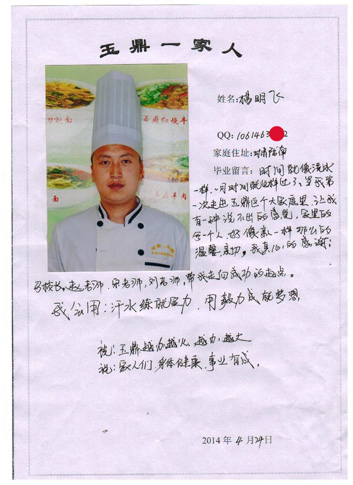 玉鼎一家人
姓名:杨明飞
QQ:
家庭住址:
毕业留言:时间就像流水
一样,一个月时间就这样过了,当我第
一次走进玉鼎这个大家庭里,让我
有一种说不出的感觉,家里的
每一个人,好像家人一样那么的
温馨,亲切,我真心的感谢
马校长,赵老师,宋老师,刘老师,带我走向成功的起点。
我会用:汗水练就实力,用毅力成就梦想
祝:玉鼎越办越火,越办越大
祝:家人们,身体健康,事业有成。
2014年4月29日